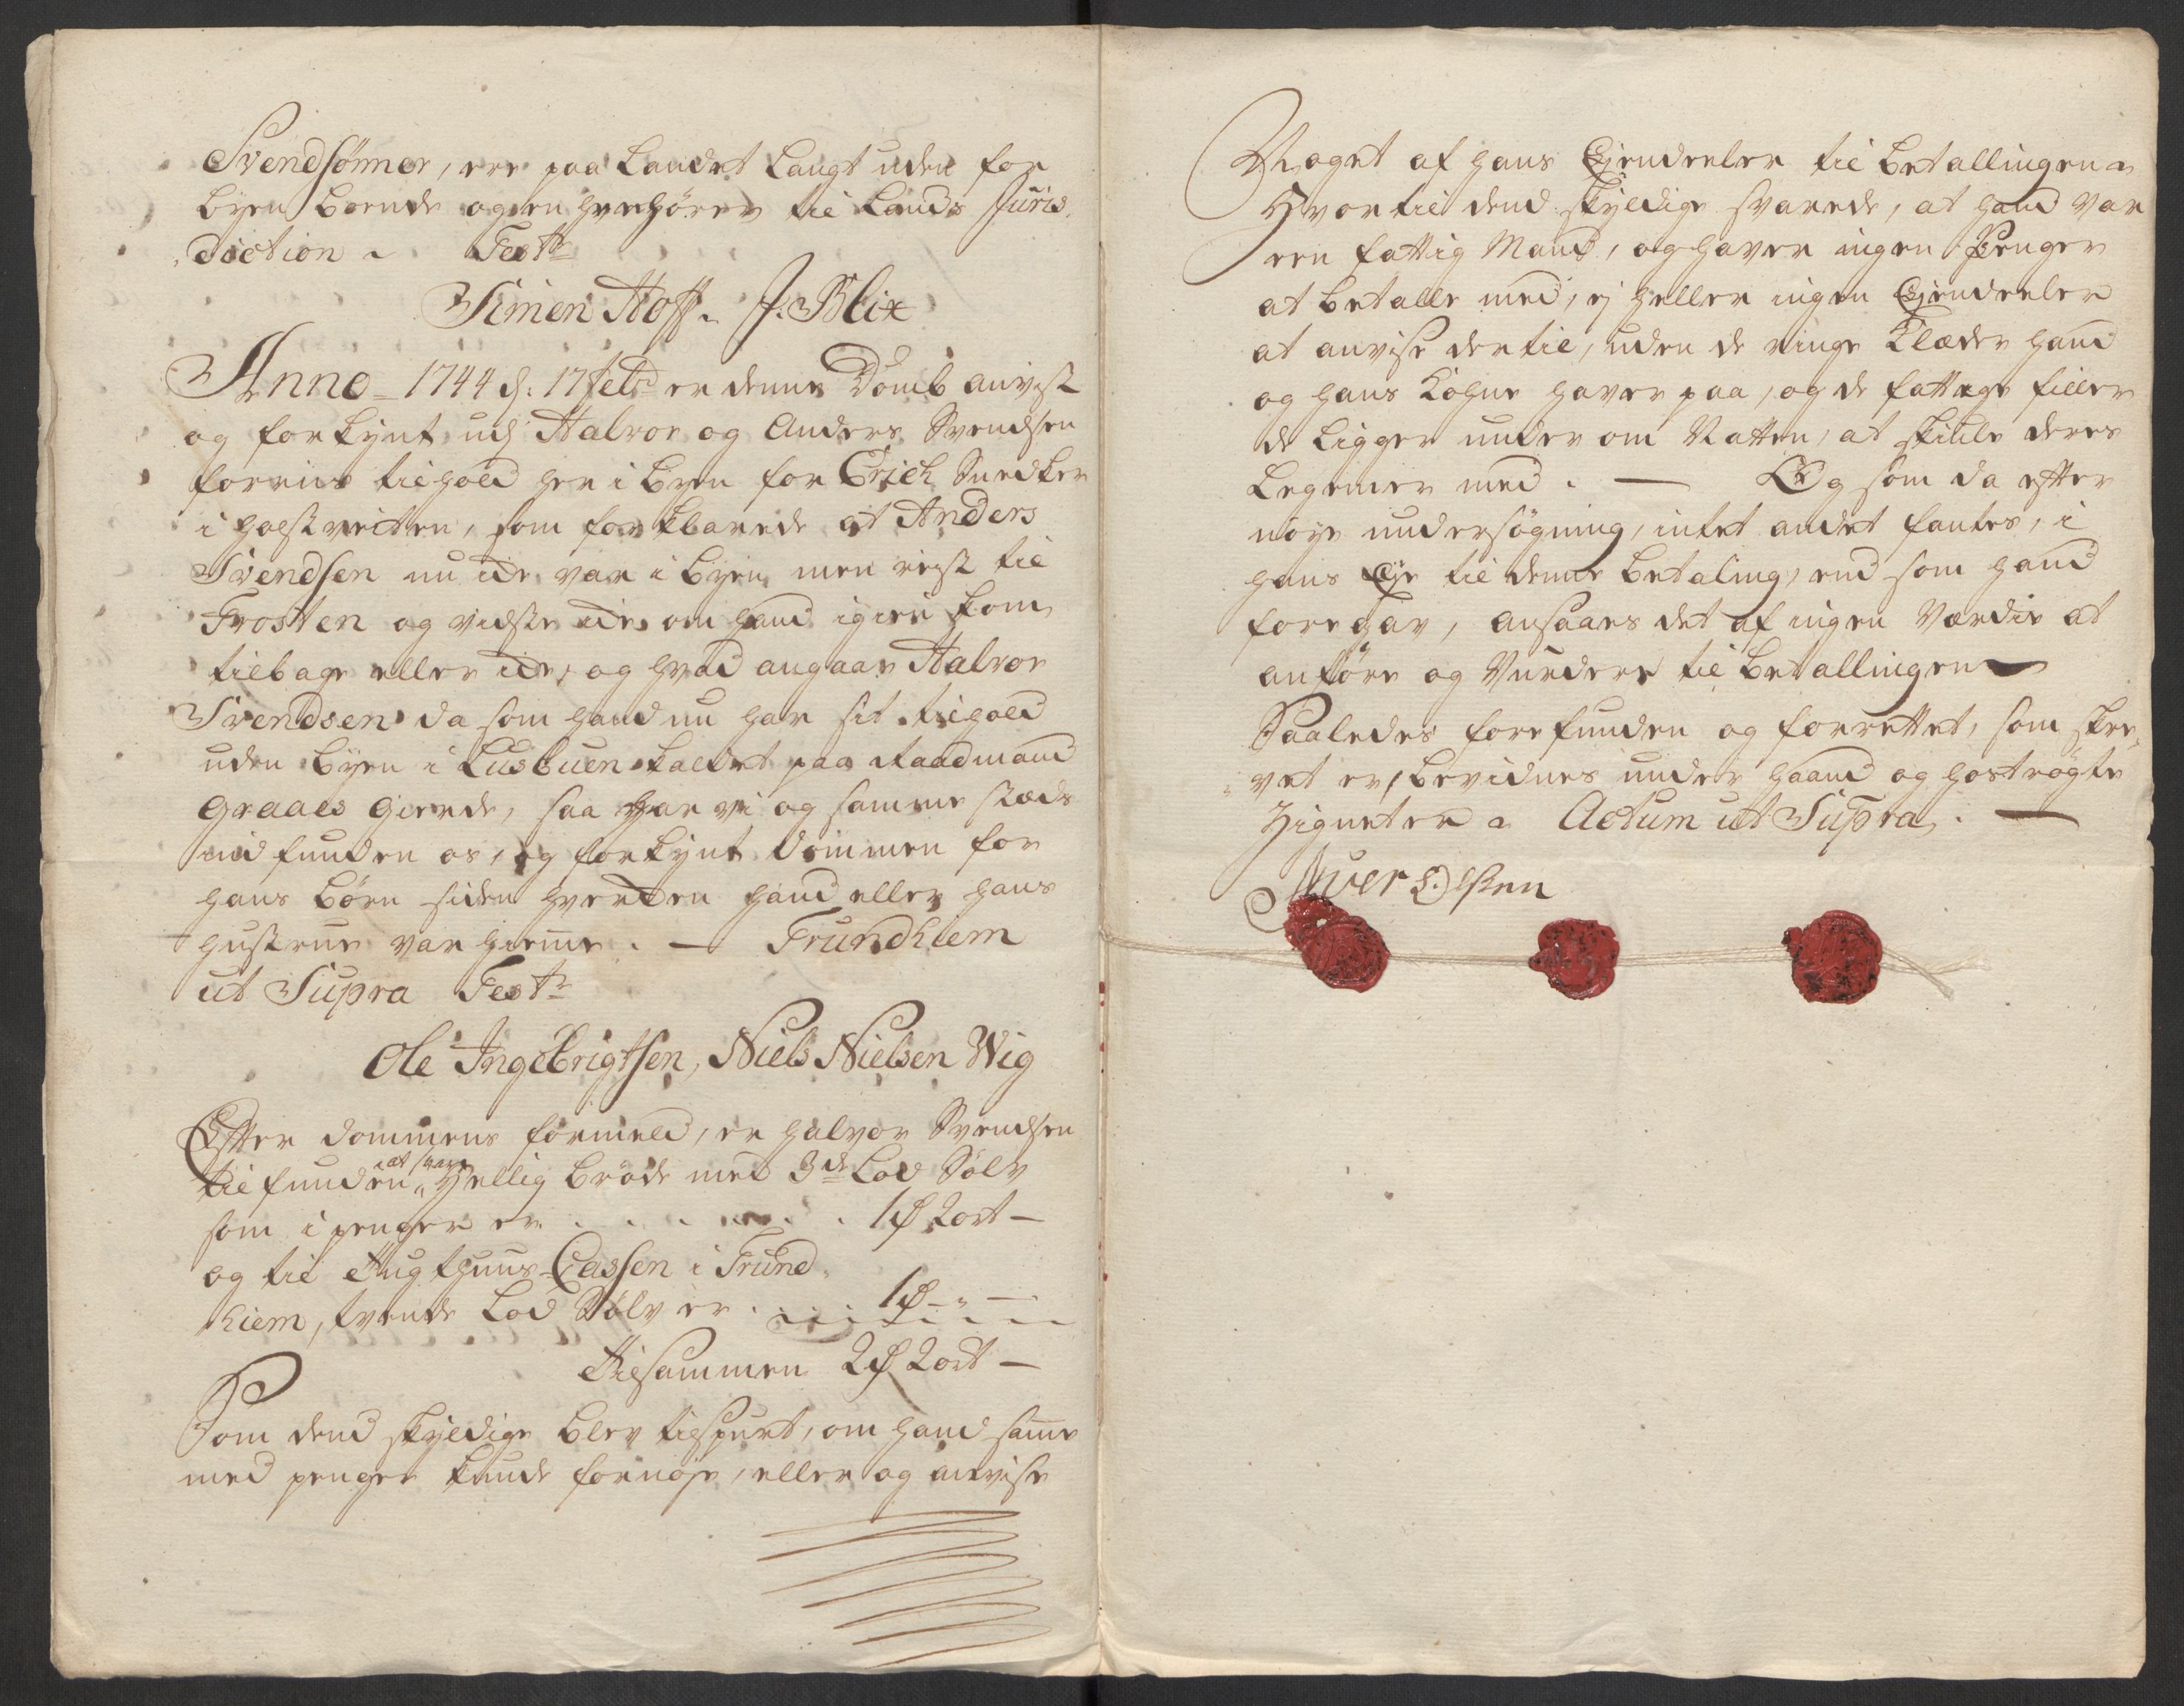 Svendsønner, ere paa Landet Langt uden for
byen boende og en hvehører til Lands Juris,
diction. Testr
Simen Hoff. J. Blix
Anno 1744 d: 17 Febr er denne Domb anvist
og forkynt, ud, Halvor og Anders Svendsen
forrige tilhold her i byen for Erich Snedker
i holstveiten, som forklarede at Anders
Svendsen nu icke var i byen, men reist til
Frosten og vidste icke om hand igien kom
tilbage eller icke, og hvad angaar Halvor
Svendsen da som hand nu har sit tilhold
uden byen i Lusbuen kaldet paa Raadmand
Graaes Gierde, saa har vi og samme stæds
ind funden os, og forkynt dommen for
hans børn siden hverken hand eller hans
hustrue var hieme. — Trundhiem
ut Supra Testr
Ole Ingebrigtsen, Niels Nielsen Wig
Efter dommens formeld, er Halvor Svendsen
til funden at svare Hellig brøde med 3de Lod Sølv
som i penger er . . . . . . 1 2 ort —
og til Tugthuus Cassen i Trund,
hiem, tvende Lod Sølv er . . . . 1 — " —
Tilsammen 2 2 ort —
Som dend skyldige blev tilspurt, om hand same
med penger kunde fornøje, eller og anvise
Noget af hans Ejendeeler til betallingen
Hvortil dend skyldige svarede, at hand var
een fattig Mand, og haver ingen Penger
at betalle med, ej heller ingen Ejendeeler
at anvise dertil, uden de ringe Klæder hand
og hans Kohne haver paa, og de fattige filler
de ligger under om Natten, at skiule deres
Legemer med. — Og som da efter
nøye undersøgning, intet andet fantes, i
hans Eje til denne betaling, end som hand
foregav, ansaaes det af ingen Værdie at
anføre og Vurdere til betallingen
Saaledes forefunden og forrettet, som skre,
vet er, bevidnes under haand og hostrøgte
Zigneter. Actum ut Supra. —
Iver Olsen